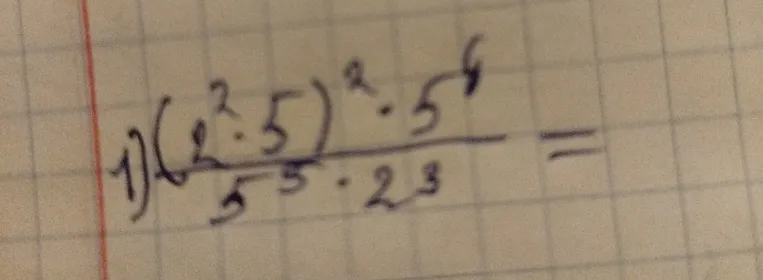 1) (2² · 5)² · 5⁶ / 5⁵ · 2³ =